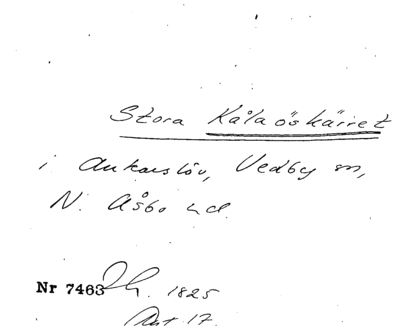 Stora Kålaöskärret
i Ankarslöv, Vedby sn,
N. Åsbo hd.
Nr 7463 1825
Akt. 17.